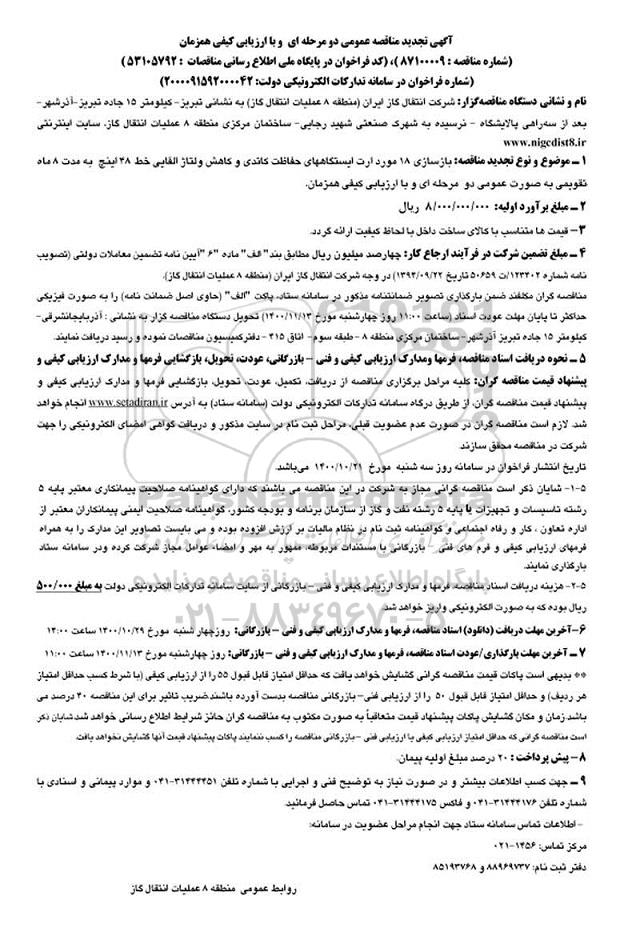 آگهی تجدید مناقصه عمومی دو مرحله ای و با ارزیابی کیفی همزمان
(شماره مناقصه : ۸۷۱۰۰۰۰۹ )، (کد فراخوان در پایگاه ملی اطلاع رسانی مناقصات : ۵۳۱۰۵۷۹۲ )
(شماره فراخوان در سامانه تدارکات الکترونیکی دولت: ۲۰۰۰۰۹۱۵۹۲۰۰۰۰۴۲)
نام و نشانی دستگاه مناقصه‌گزار: شرکت انتقال گاز ایران (منطقه ۸ عملیات انتقال گاز) به نشانی تبریز- کیلومتر ۱۵ جاده تبریز-آذرشهر-
بعد از سه‌راهی پالایشگاه - نرسیده به شهرک صنعتی شهید رجایی- ساختمان مرکزی منطقه ۸ عملیات انتقال گاز. سایت اینترنتی
www.nigcdist8.ir
۱ – موضوع و نوع تجدید مناقصه: بازسازی ۱۸ مورد ارت ایستگاههای حفاظت کاتدی و کاهش ولتاژ القایی خط ۴۸ اینچ به مدت ۸ ماه
تقویمی به صورت عمومی دو مرحله ای و با ارزیابی کیفی همزمان.
۲ – مبلغ برآورد اولیه: ۸/۰۰۰/۰۰۰/۰۰۰ ریال
۳- قیمت ها متناسب با کالای ساخت داخل با لحاظ کیفیت ارائه گردد.
۴ – مبلغ تضمین شرکت در فرآیند ارجاع کار: چهارصد میلیون ریال مطابق بند" الف" ماده "۶ "آیین نامه تضمین معاملات دولتی (تصویب
نامه شماره ۱۲۳۴۰۲/ت ۵۰۶۵۹ تاریخ ۱۳۹۴/۰۹/۲۲) در وجه شرکت انتقال گاز ایران (منطقه ۸ عملیات انتقال گاز).
مناقصه گران مکلفند ضمن بارگذاری تصویر ضمانتنامه مذکور در سامانه ستاد، پاکت "الف" (حاوی اصل ضمانت نامه) را به صورت فیزیکی
حداکثر تا پایان مهلت عودت اسناد (ساعت ۱۱:۰۰ روز چهارشنبه مورخ ۱۴۰۰/۱۱/۱۳) تحویل دستگاه مناقصه گزار به نشانی : آذربایجانشرقی-
کیلومتر ۱۵ جاده تبریز آذرشهر- ساختمان مرکزی منطقه ۸ -طبقه سوم- اتاق ۴۱۵ -دفترکمیسیون مناقصات نموده و رسید دریافت نمایند.
۵ – نحوه دریافت اسناد مناقصه، فرمها ومدارک ارزیابی کیفی و فنی – بازرگانی، عودت، تحویل، بازگشایی فرمها و مدارک ارزیابی کیفی و
پیشنهاد قیمت مناقصه گران: کلیه مراحل برگزاری مناقصه از دریافت، تکمیل، عودت، تحویل، بازگشایی فرمها و مدارک ارزیابی کیفی و
پیشنهاد قیمت مناقصه گران، از طریق درگاه سامانه تدارکات الکترونیکی دولت (سامانه ستاد) به آدرس www.setadiran.ir انجام خواهد
شد. لازم است مناقصه گران در صورت عدم عضویت قبلی، مراحل ثبت نام در سایت مذکور و دریافت گواهی امضای الکترونیکی را جهت
شرکت در مناقصه محقق سازند.
تاریخ انتشار فراخوان در سامانه روز سه شنبه مورخ ۱۴۰۰/۱۰/۲۱ می‌باشد.
۱-۵- شایان ذکر است مناقصه گرانی مجاز به شرکت در این مناقصه می باشند که دارای گواهینامه صلاحیت پیمانکاری معتبر پایه ۵
رشته تاسیسات و تجهیزات یا پایه ۵ رشته نفت و گاز از سازمان برنامه و بودجه کشور، گواهینامه صلاحیت ایمنی پیمانکاران معتبر از
اداره تعاون ، کار و رفاه اجتماعی و گواهینامه ثبت نام در نظام مالیات بر ارزش افزوده بوده و می بایست تصاویر این مدارک را به همراه
فرمهای ارزیابی کیفی و فرم های فنی – بازرگانی با مستندات مربوطه، ممهور به مهر و امضاء عوامل مجاز شرکت کرده ودر سامانه ستاد
بارگذاری نمایند.
۲-۵- هزینه دریافت اسناد مناقصه، فرمها و مدارک ارزیابی کیفی و فنی – بازرگانی از سایت سامانه تدارکات الکترونیکی دولت به مبلغ ۵۰۰/۰۰۰
ریال بوده که به صورت الکترونیکی واریز خواهد شد
۶-آخرین مهلت دریافت (دانلود) اسناد مناقصه، فرمها و مدارک ارزیابی کیفی و فنی – بازرگانی: روزچهار شنبه مورخ ۱۴۰۰/۱۰/۲۹ ساعت ۱۲:۰۰
۷ – آخرین مهلت بارگذاری/عودت اسناد مناقصه، فرمها و مدارک ارزیابی کیفی و فنی – بازرگانی: روز چهارشنبه مورخ ۱۴۰۰/۱۱/۱۳ ساعت ۱۱:۰۰
** بدیهی است پاکات قیمت مناقصه گرانی گشایش خواهد یافت که حداقل امتیاز قابل قبول ۵۵ را از ارزیابی کیفی (با شرط کسب حداقل امتیاز
هر ردیف) و حداقل امتیاز قابل قبول ۵۰ را از ارزیابی فنی-بازرگانی مناقصه بدست آورده باشند.ضریب تاثیر برای این مناقصه ۴۰ درصد می
باشد.زمان و مکان گشایش پاکات پیشنهاد قیمت متعاقباً به صورت مکتوب به مناقصه گران حائز شرایط اطلاع رسانی خواهد شد.شایان ذکر
است مناقصه گرانی که حداقل امتیاز ارزیابی کیفی یا ارزیابی فنی -بازرگانی مناقصه را کسب ننمایند پاکات پیشنهاد قیمت آنها گشایش نخواهد یافت.
۸– پیش پرداخت : ۲۰ درصد مبلغ اولیه پیمان.
۹ – جهت کسب اطلاعات بیشتر و در صورت نیاز به توضیح فنی و اجرایی با شماره تلفن ۳۱۴۴۴۴۵۱-۰۴۱ و موارد پیمانی و اسنادی با
شماره تلفن ۳۱۴۴۴۱۷۶-۰۴۱ و فاکس ۳۱۴۴۴۱۷۵-۰۴۱ تماس حاصل فرمائید.
-اطلاعات تماس سامانه ستاد جهت انجام مراحل عضویت در سامانه:
مرکز تماس: ۱۴۵۶-۰۲۱
دفتر ثبت نام: ۸۸۹۶۹۷۳۷ و ۸۵۱۹۳۷۶۸
روابط عمومی منطقه ۸ عملیات انتقال گاز
ParsNamadData
پایگاه اطلاع رسانی مناقصه و مزایده
۰۲۱-۸۸۳۴۹۶۷۰-۵